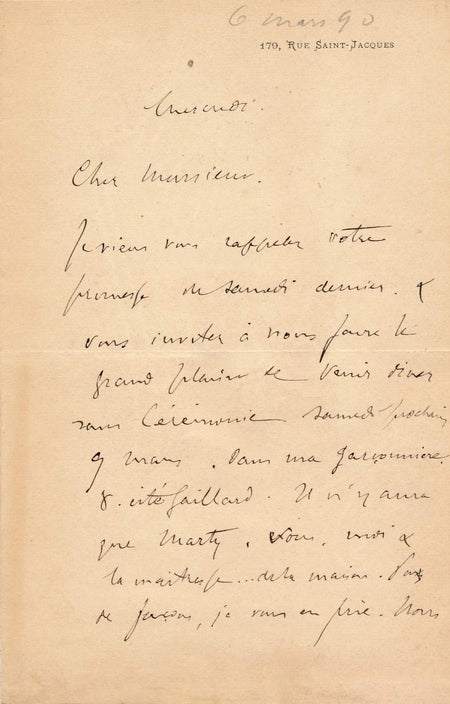 6 mars 90
179, RUE SAINT-JACQUES
Mercredi.
Cher Monsieur.
Je viens vous rappeler votre
promesse de samedi dernier. &
vous inviter à nous faire le
grand plaisir de venir diner
sans Cérémonie samedi prochain
9 mars. Dans ma garçonnière
8. cité Gaillard. Il n'y aura
que Marty, vous, moi &
la maitresse... de la maison. Pas
de façons, je vous en prie. Nous